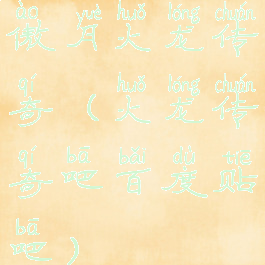 ào yuè huǒ lóng chuán
傲月火龙传
qí huǒ lóng chuán
奇（火龙传
qí bā bǎi dù tiē
奇吧百度贴
bā
吧）